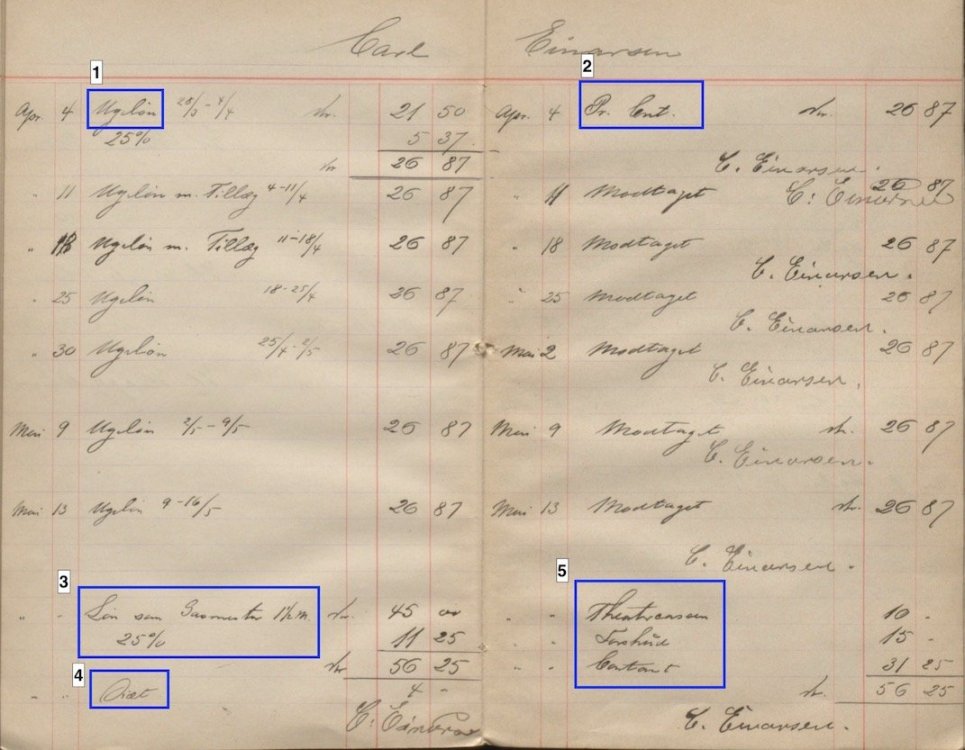 Carl Einarsen
1 2
Apr. 4 Ugeløn 28/3 - 4/4 Kr. 21 50
25% 5 37
Kr 26 87
" 11 Ugeløn m. Tillæg 4-11/4 26 87
" 18 Ugeløn m. Tillæg 11-18/4 26 87
" 25 Ugeløn 18-25/4 26 87
" 30 Ugeløn 25/4-2/5 26 87
Mai 9 Ugeløn 2/5-9/5 26 87
Mai 13 Ugeløn 9-16/5 26 87
3
" - Løn som 1½ M. Kr. 45 00
25% 11 25
Kr 56 25
4
" " Diæt 4 -
C. Einarsen
Apr. 4 Pr. Cont. Kr. 26 87
C. Einarsen.
" 11 Modtaget 26 87
C. Einarsen
" 18 Modtaget 26 87
C. Einarsen.
" 25 Modtaget 26 87
C. Einarsen.
Mai 2 Modtaget 26 87
C. Einarsen.
Mai 9 Modtaget Kr. 26 87
C. Einarsen.
Mai 13 Modtaget Kr. 26 87
C. Einarsen.
5
" - 10 -
" - Forskud 15 -
" - Contant 31 25
Kr. 56 25
C. Einarsen.